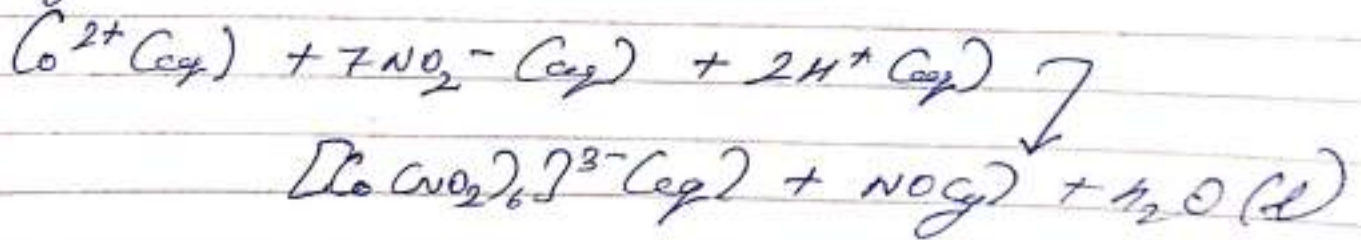 Co²⁺ (aq) + 7NO₂⁻ (aq) + 2H⁺ (aq)
[Co(NO₂)₆]³⁻ (aq) + NO(g) + H₂O (l)